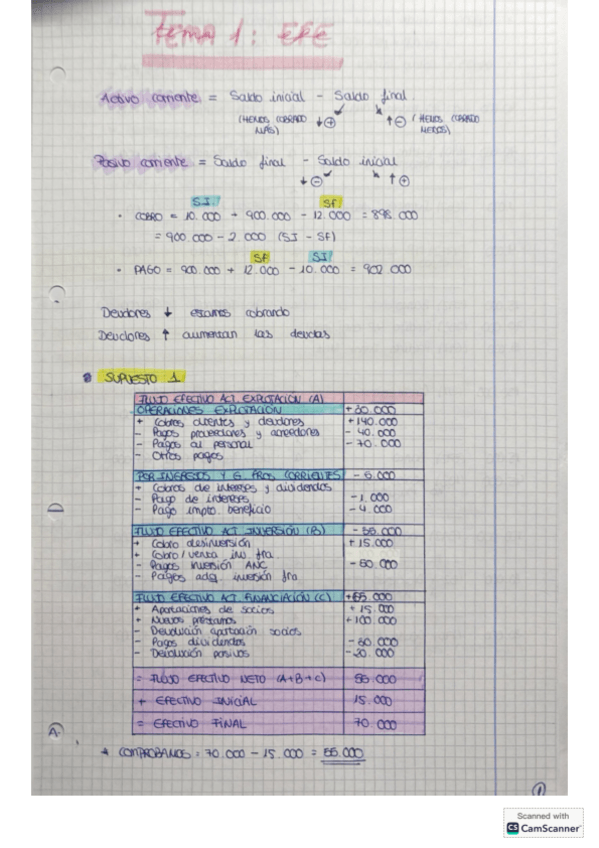 TEMA 1: EFE
Activo corriente = Saldo inicial - Saldo final
(HEMOS COBRADO MÁS) ↓ + ↑ - (HEMOS COBRADO MENOS)
Pasivo corriente = Saldo final - Saldo inicial
↓ - ↑ +
SI SF
· COBRO = 10.000 + 900.000 - 12.000 = 898.000
= 900.000 - 2.000 (SI - SF)
SF SI
· PAGO = 900.000 + 12.000 - 10.000 = 902.000
Deudores ↓ estamos cobrando
Deudores ↑ aumentan las deudas
SUPUESTO 1
FLUJO EFECTIVO ACT. EXPLOTACIÓN (A)
OPERACIONES EXPLOTACIÓN +30.000
+ Cobros clientes y deudores +140.000
- Pagos proveedores y acreedores - 40.000
- Pagos al personal - 70.000
- Otros pagos
POR INGRESOS Y G. FROS CORRIENTES - 5.000
+ Cobros de intereses y dividendos
- Pago de intereses - 1.000
- Pago impto. beneficio - 4.000
FLUJO EFECTIVO ACT. INVERSIÓN (B) - 35.000
+ Cobro desinversión + 15.000
+ Cobro/venta inv. fra
- Pagos inversión ANC - 50.000
- Pagos adq. inversión fra
FLUJO EFECTIVO ACT. FINANCIACIÓN (C) +65.000
+ Aportaciones de socios + 15.000
+ Nuevos préstamos + 100.000
- Devolución aportación socios
- Pagos dividendos - 30.000
- Devolución pasivos - 20.000
= FLUJO EFECTIVO NETO (A+B+C) 55.000
+ EFECTIVO INICIAL 15.000
= EFECTIVO FINAL 70.000
* COMPROBAMOS = 70.000 - 15.000 = 55.000
1
Scanned with
CS CamScanner